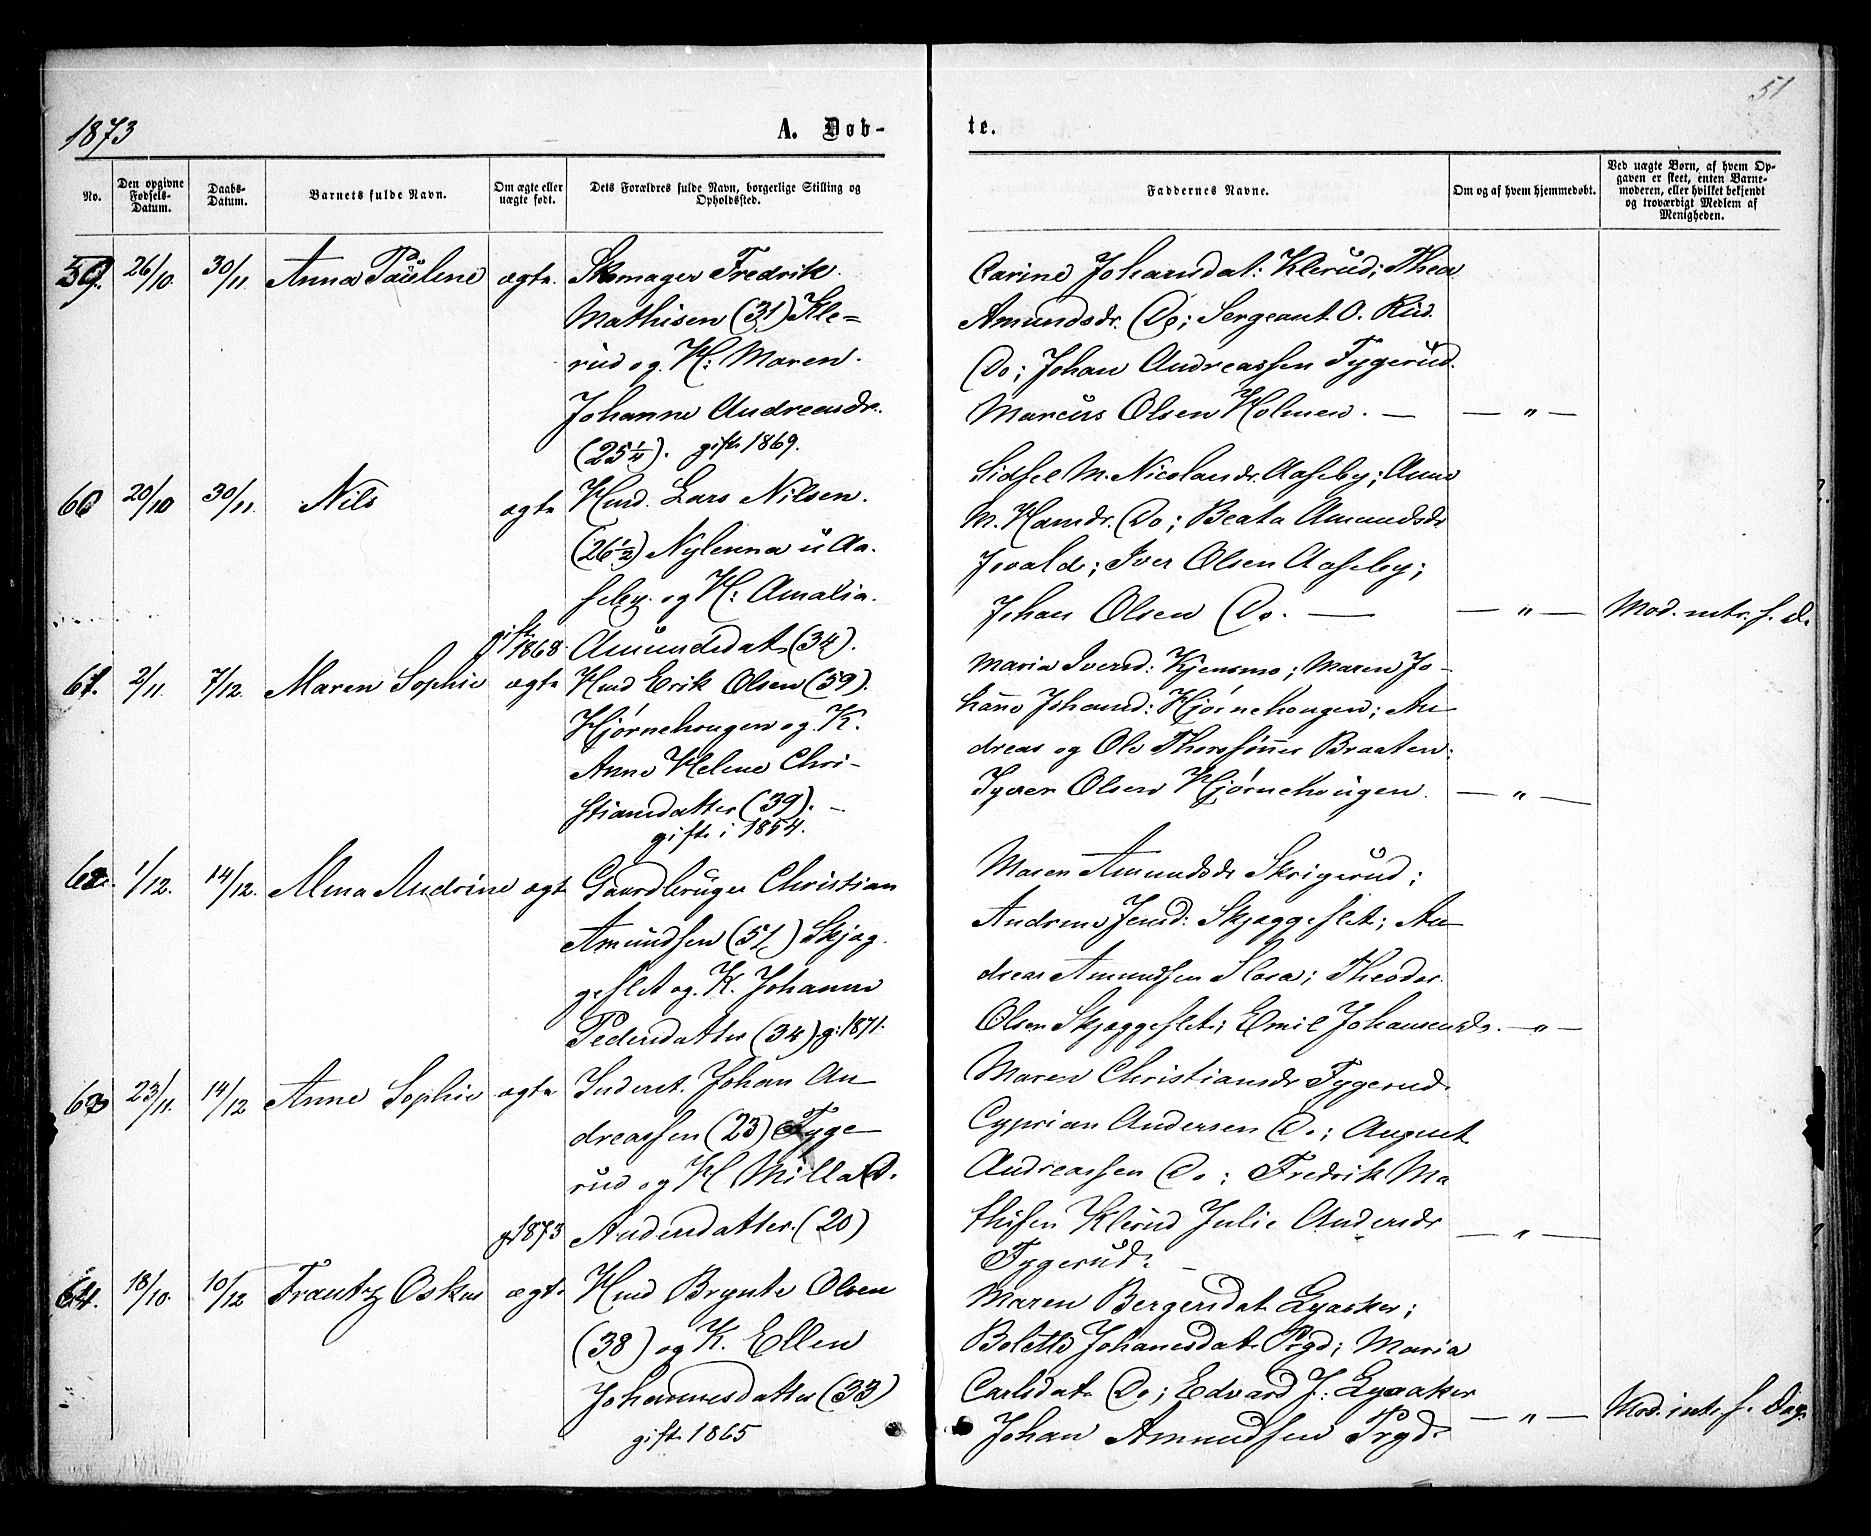 51
1873
A. Døb-
te.
No.
Den opgivne Fødsels-Datum.
Daabs-Datum.
Barnets fulde Navn.
Om ægte eller uægte født.
Dets Forældres fulde Navn, borgerlige Stilling og Opholdssted.
Faddernes Navne.
Om og af hvem hjemmedøbt.
Ved uægte Børn, af hvem Op-
gaven er skeet, enten Barne-
moderen, eller hvilket bekjendt
og troværdigt Medlem af
Menigheden.
59. 26/10. 30/11 Anna Paulene ægte. Skomager Fredrik
Mathisen (31) Kle=
rud og H: Maren
Johanne Andreasdr.
(25 1/4). gift 1869.
Carine Johansdat: Klerud; Thea
Amundsdr. Do; Sergeant O. Rud
Do; Johan Andreassen Tygerud.
Marcus Olsen Holmen. — — " —
60 20/10 30/11. Nils ægte Husd. Lars Nilsen.
(26 1/2) Nylenna u Aa-
seby og H: Amalia
gift 1868 Amundsdat (34).
Sidsel M. Nicolaisdr. Aaseby; Anne
M. Hansdr. Do; Beata Amundsdr
Iver Olsen Aaseby;
Johan Olsen Do. — — " — Mod. intr. s. D.
61. 2/11. 7/12. Maren Sophie ægte Husd Erik Olsen (59).
Hjørnehougen og K.
Anne Helene Chri-
stiansdatter (39). —
gift i 1854.
Maria Iversd: Kjensmo; Maren Jo-
hanne Johansd: Hjørnehougen; An
dreas og Ole Thorssønner Braaten.
Syver Olsen Hjørnehougen. — " —
62. 1/12. 14/12. Alma Andrine ægt Gaardbruger Christian
Amundsen (51) Skjæg-
geslet og K. Johanne
Pedersdatter (34) g: 1871.
Maren Amundsdr Skrigerud;
Andrine Jensd: Skjæggeslet; An
dreas Amundsen Slora; Theodor
Olsen Skjæggeslet; Emil Johansen do. — " —
63 23/11. 14/12 Anne Sophie ægte Inderst. Johan An
dreassen (23) Tyge
rud og H Milla D.
g. 1873 Andersdatter (20)
Maren Christiansdr Tygerud.
Cyprian Andersen Do; August
Andreassen Do; Fredrik Ma
thisen Klerud Julie Andersdr — " —
Tygerud. —
64. 18/10. 10/12 Frantz Oskar ægt. Husd Brynte Olsen
(38) og K. Ellen
Johannesdatter (33)
gift 1865
Maren Bergersdat Gyaaker;
Bolette Johanesdat Prgd; Maria
Carlsdat. Do; Edvard J: Gyaaker
Johan Amundsen Prgd. — " — Mod. intr. s. Dag.